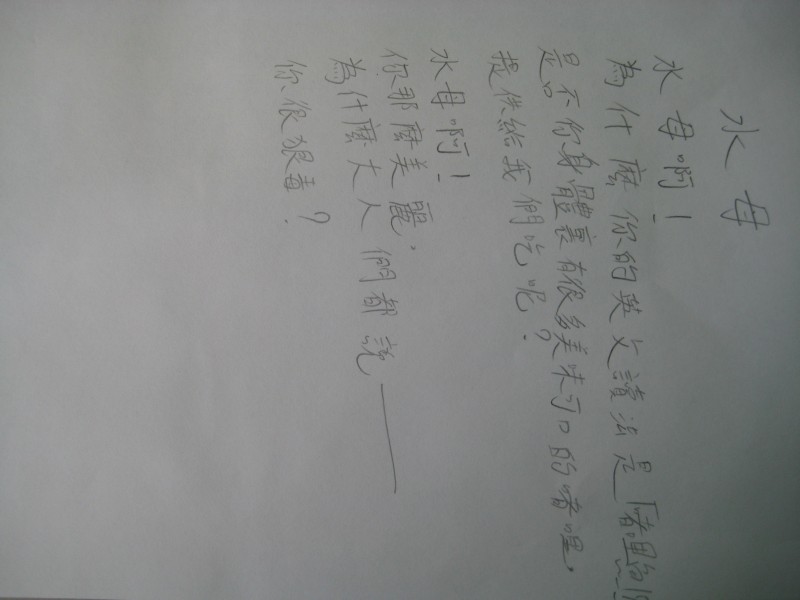 水母
水母啊！
為什麼你的英文讀法是「啫哩
是不你身體裏有很多美味可口的啫哩，
提供給我們吃呢？
水母啊！
你那麼美麗，
為什麼大人們都說——
你很狠毒？